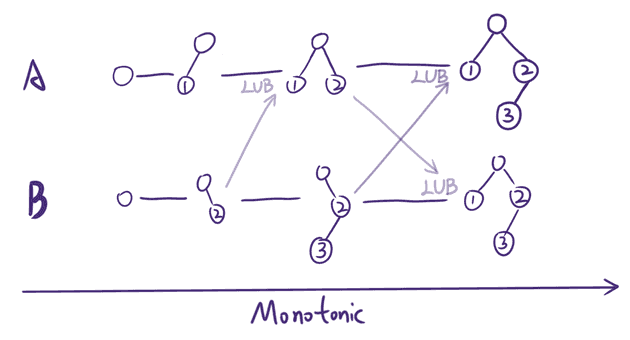 A
1
LUB
1 2
LUB
1 2
3
B
2
2
3
LUB
1 2
3
Monotonic